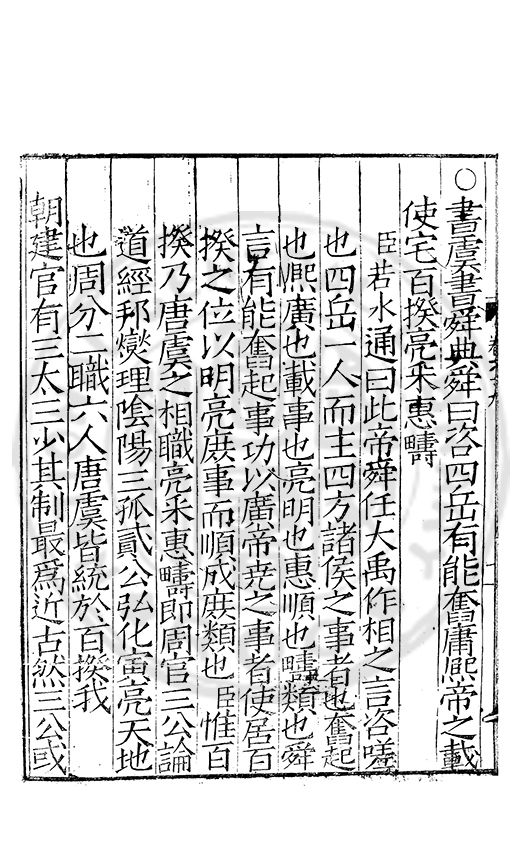 ○書虞書舜典舜曰咨四岳有能奮庸熙帝之載
使宅百揆亮采惠疇
臣若水通曰此帝舜任大禹作相之言咨嗟
也四岳一人而主四方諸侯之事者也奮起
也熈廣也載事也亮明也惠順也疇類也舜
言有能奮起事功以廣帝堯之事者使居百
揆之位以明亮庶事而順成庶類也臣惟百
揆乃唐虞之相職亮采惠疇即周官三公論
道經邦燮理隂陽三孤貳公弘化寅亮天地
也周分二職六人唐虞皆統於百揆我
朝建官有三太三少其制最爲近古然三公或